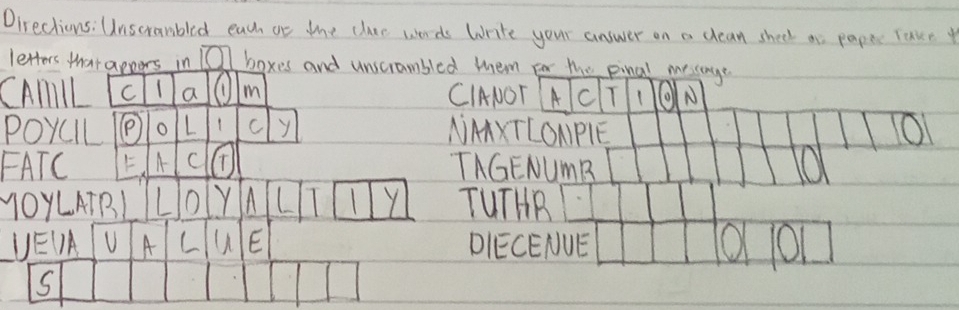 Directions: Unscrambled each of the clue words Write your answer on a clean sheet of paper
letters that appers in O boxes and unscrambled them for the final message.
CAMIL C l a i m
POYCIL P O L I C Y
FATC F A C T
LOYALTIY
UEVA V A L U E
S
CIANOT A C T I O N
NAAXTLONPIE
TAGENUMR
TUTHR
DIECENUE